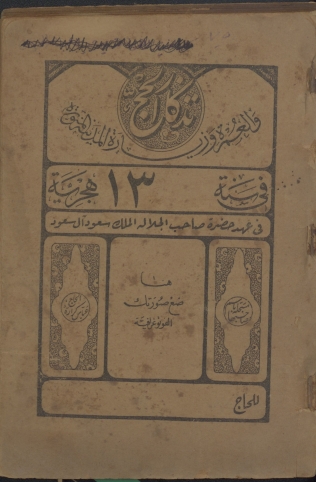 تذكار الحج
والعمرة وزيارة المدينة المنورة
في سنة ١٣ هجرية
في عهد حضرة صاحب الجلالة الملك سعود آل سعود
هنا
ضع صورتك
الفوتوغرافية
للحاج